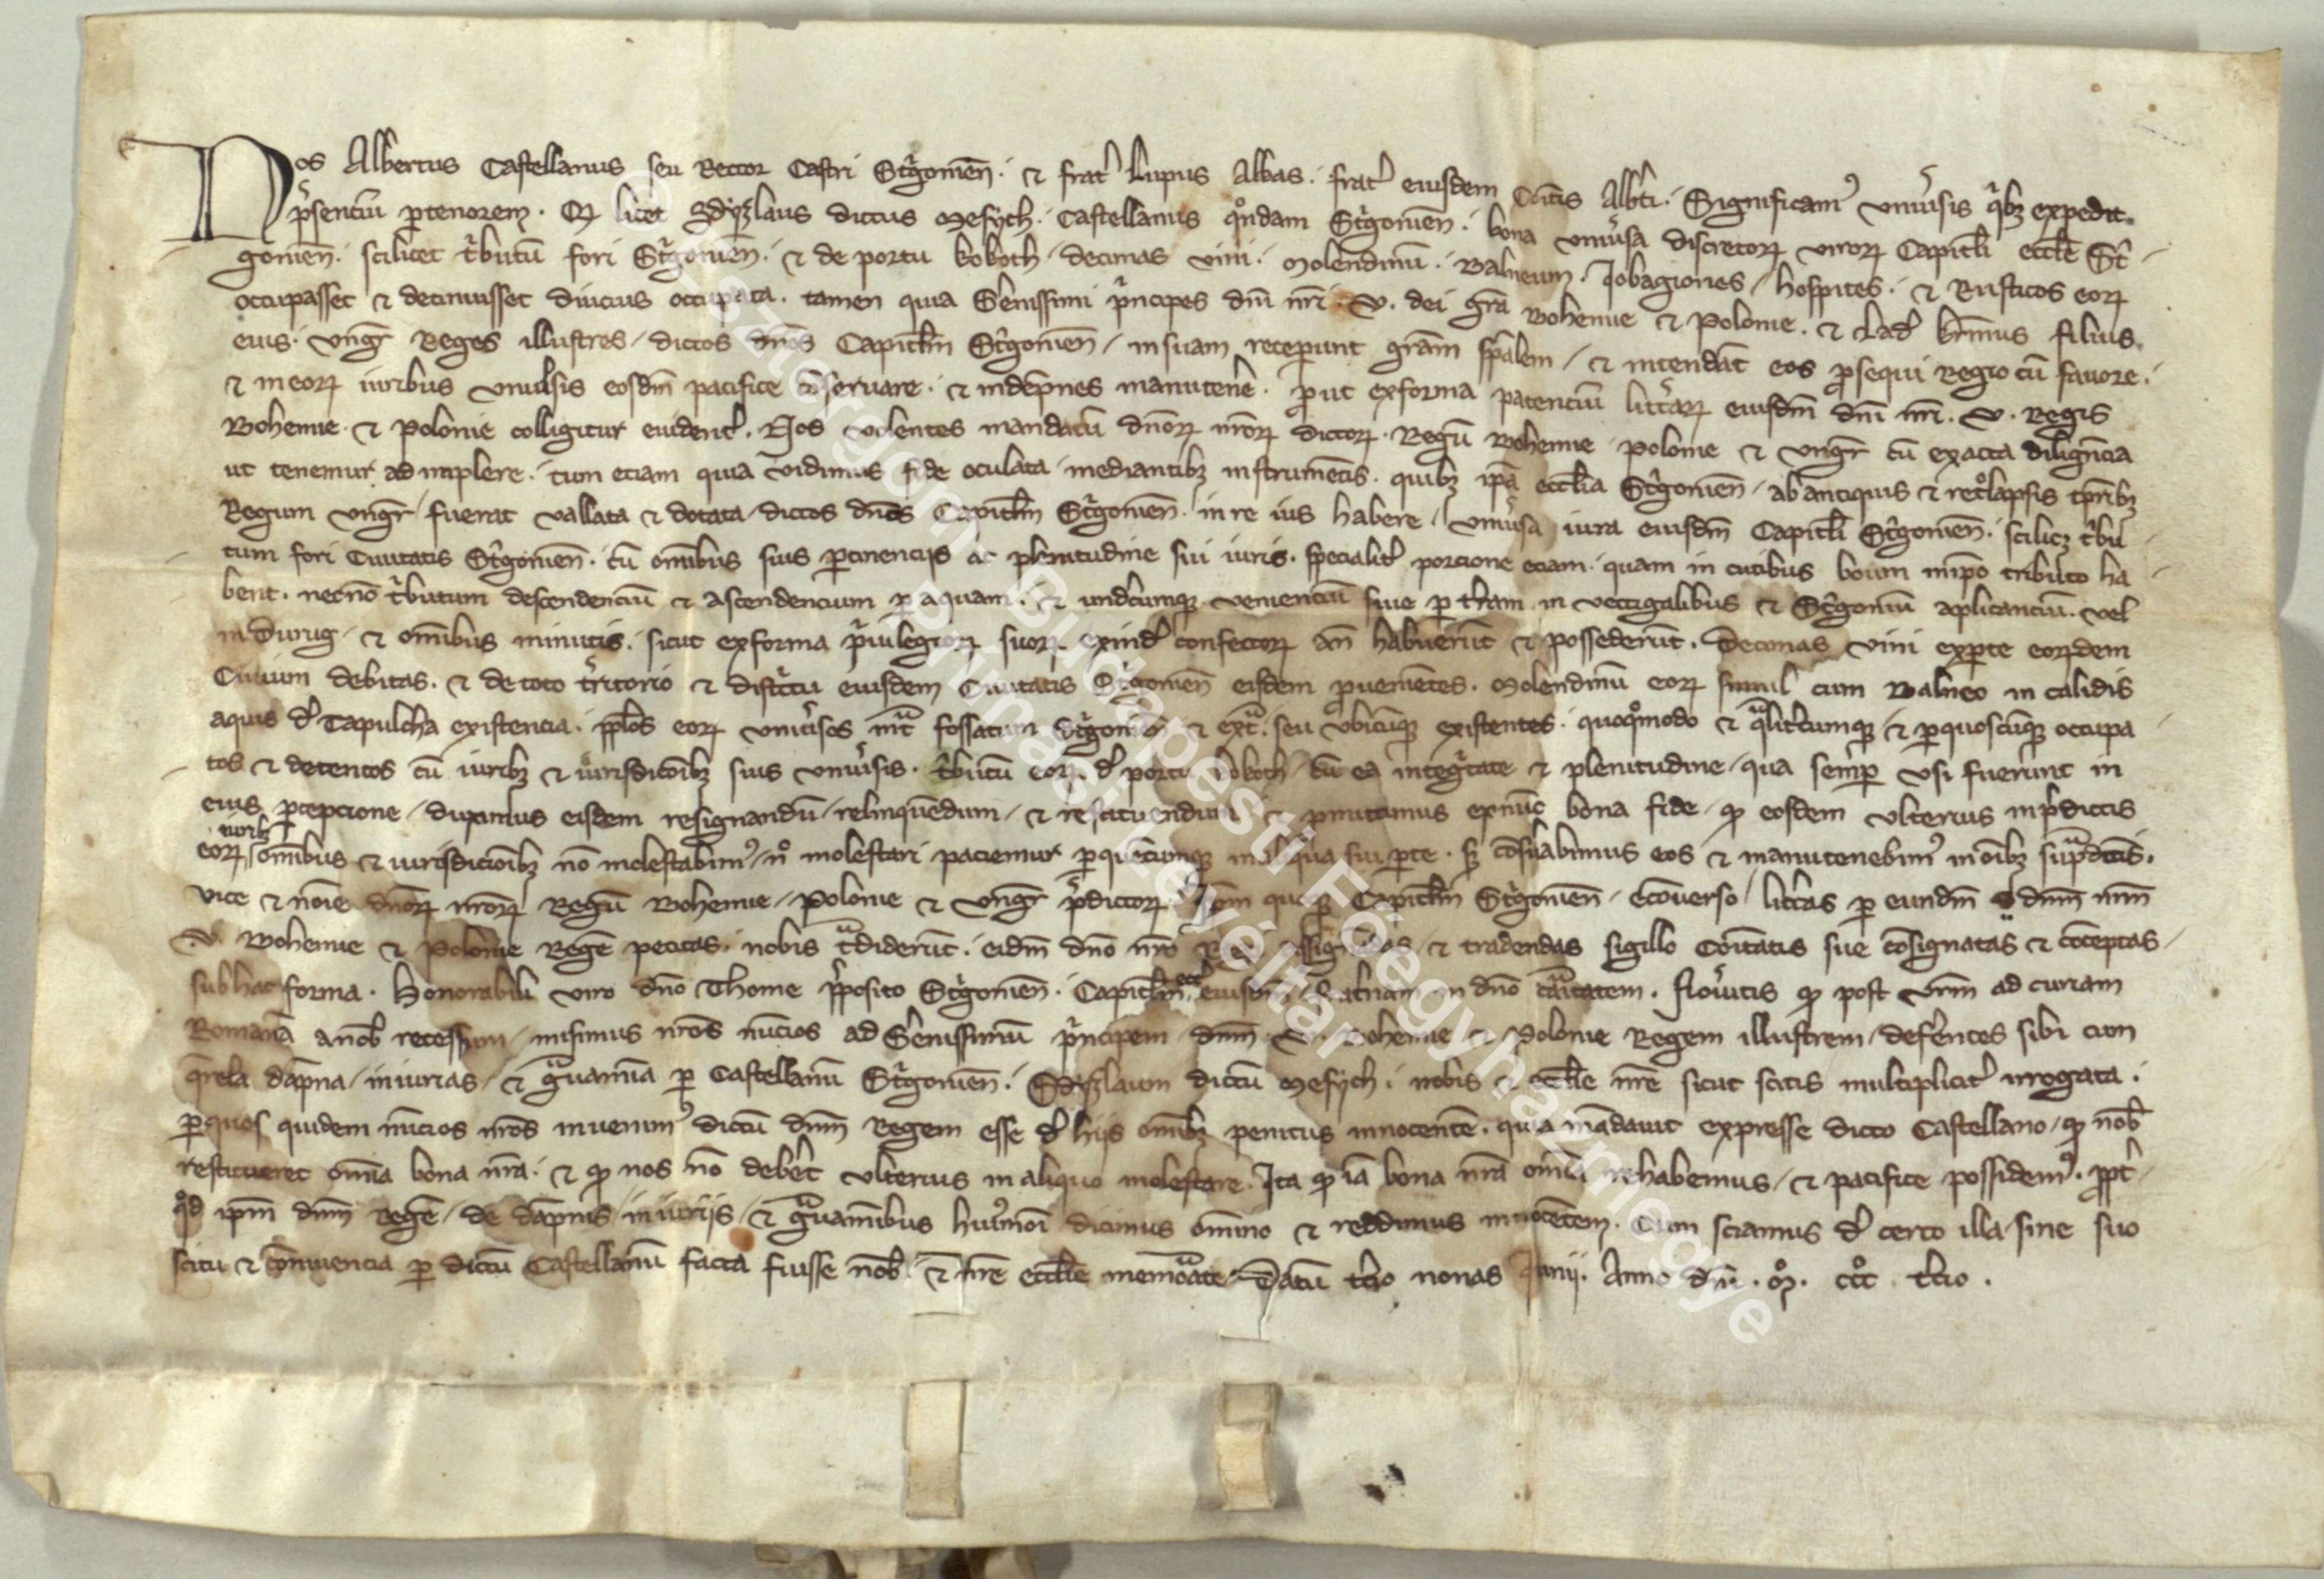 Nos Albertus Castellanus seu Rector Castri Strigonien̄. et frater Lupus Albas. frater eiusdem Comitis Alberti. Significamus vniuersis quibus expedit
presencium per tenorem. Quod licet Sdyzlaus dictus Mesych. Castellanus quondam Strigonien̄. bona vniuersa discretorum virorum Capituli ecclesie Stri
gonien̄. scilicet tributum fori Strigonien̄. et de portu kokoth. decimas vini. Molendinum. Balneum. Iobagiones, hospites. et Rusticos eorum
occupasset et detinuisset diucius occupata. tamen quia Serenissimi principes domini nostri. W. dei gracia Bohemie et Polonie. et Lad. filius
eius. Vngarie Reges illustres, dictos dominos Capitulum Strigonien̄, in suam receperunt graciam specialem, et intendant eos prosequi Regio cum fauore.
et in eorum iuribus vniuersis eosdem pacifice conseruare. et indempnes manutenere. prout ex forma patencium litterarum eiusdem domini nostri. W. Regis
Bohemie. et Polonie colligitur euidenter. Nos volentes mandatum dominorum nostrorum dictorum. Regum Bohemie Polonie et Vngarie cum exacta diligencia
ut tenemur ad implere. tum eciam quia vidimus fide oculata mediantibus instrumentis. quibus ipsa ecclesia Strigonien̄, ab antiquis et retrolapsis temporibus
Regum Vngarie, fuerat vallata et dotata, dictos dominos Capitulum Strigonien̄. in re ius habere, vniuersa iura eiusdem Capituli Strigonien̄. scilicet tribu
tum fori Ciuitatis Strigonien̄. cum omnibus suis pertinencijs ac plenitudine sui iuris. specialiter porcione eciam. quam in cutibus boum in ipso tributo ha
bent. necnon tributum descendencium et ascendencium per aquam. et undecumque veniencium siue per terram in vectigalibus et Strigonium aplicancium. vel
in durug. et omnibus minutis. sicut ex forma priuilegiorum suorum exinde confectorum ante habuerunt et possederunt. Decimas vini ex parte eorumdem
Ciuium debitas. et de toto territorio et districtu eiusdem Ciuitatis Strigonien̄ eisdem prouenientes. Molendinum eorum simul cum Balneo in calidis
aquis de Tapulcha existencia. populos eorum vniuersos intra fossatum Strigonien̄ et extra. seu vbicumque existentes. quoquomodo et qualitercumque, et per quoscumque occupa
tos et detentos cum iuribus et iurisdiccionibus suis vniuersis. tributum eorum de portu kokoth cum ea integritate et plenitudine, qua semper vsi fuerunt in
eius percepcione, duximus eisdem resignandum, relinquendum, et restituendum et promittimus ex nunc bona fide, quod eosdem vlterius in predictis
iuribus
eorum omnibus et iurisdicionibus non molestabimus, nec molestari paciemur per quemcumque in aliqua sui parte. set conseruabimus eos et manutenebimus in omnibus supradictis.
vice et nomine dominorum nostrorum Regum Bohemie, Polonie et Vngarie predictorum quoque Capitulum Strigonien̄, econuerso, litteras per eundem dominum nostrum
W. Bohemie et Polonie Regem petitas. nobis tradiderunt. eidem domino nostro Regi assignandas, et tradendas sigillo Communitatis sue consignatas et conceptas
sub hac forma. Honorabili viro domino Thome preposito Strigonien̄. Capitulum ecclesie eiusdem in domino caritatem. Noueritis quod post vestrum ad curiam
Romanam a nobis recessum, misimus nostros nuncios ad Serenissimum principem dominum. W. Bohemie et Polonie Regem illustrem, deferentes sibi cum
querela dampna, iniurias, et grauamina per Castellanum Strigonien̄. Sdyzlaum dictum Mesych. nobis et ecclesie nostre sicut scitis multipliciter irrogata.
per quos quidem nuncios nostros inuenimus dictum dominum Regem esse de hijs omnibus penitus innocentem. quia mandauit expresse dicto Castellano, quod nobis
restitueret omnia bona nostra. et quod nos non deberet vlterius in aliquo molestare. Ita quod iam bona nostra omnia rehabemus, et pacifice possidemus. propter
quod ipsum dominum Regem, de dampnis, iniurijs, et grauaminibus huiusmodi dicimus omnino et reddimus innocentem. Cum sciamus de certo illa, sine suo
scitu et conniuencia per dictum Castellanum facta fuisse nobis. et nostre ecclesie memorate. Datum tercio nonas Iunij. Anno domini. M. CCC. tercio.
© Esztergom-Budapesti Főegyházmegye
Prímási Levéltár